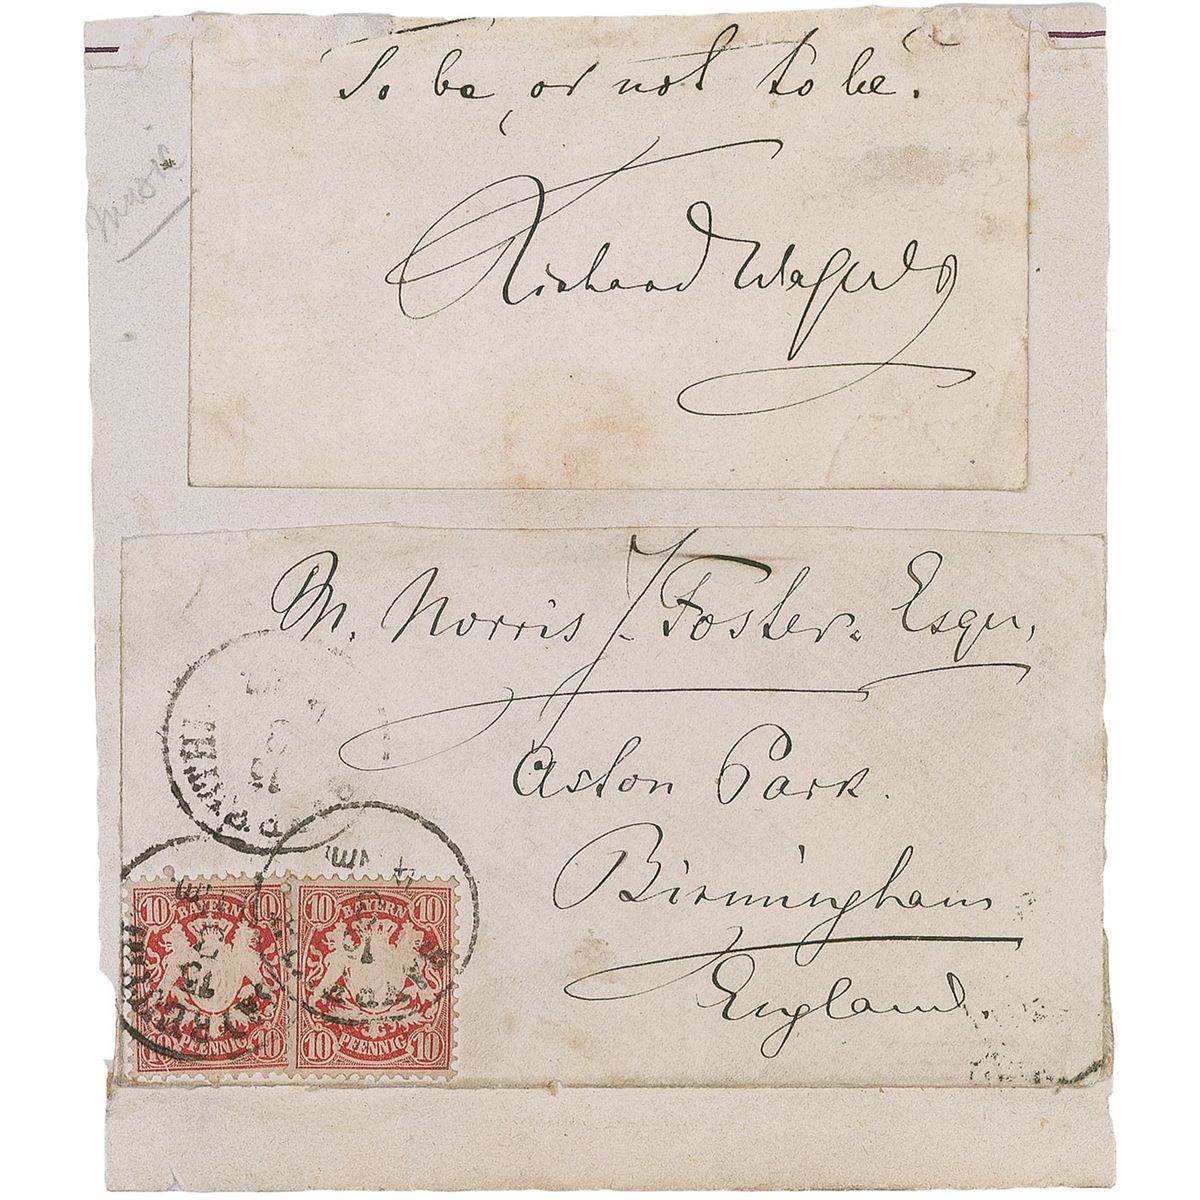 To be, or not to be.
Richard Wagner
Music
M. Norris J. Foster. Esqu,
Aston Park.
Birmingham
England.
10 BAYERN 10
10 PFENNIG 10
10 BAYERN 10
10 PFENNIG 10
BAYREUTH